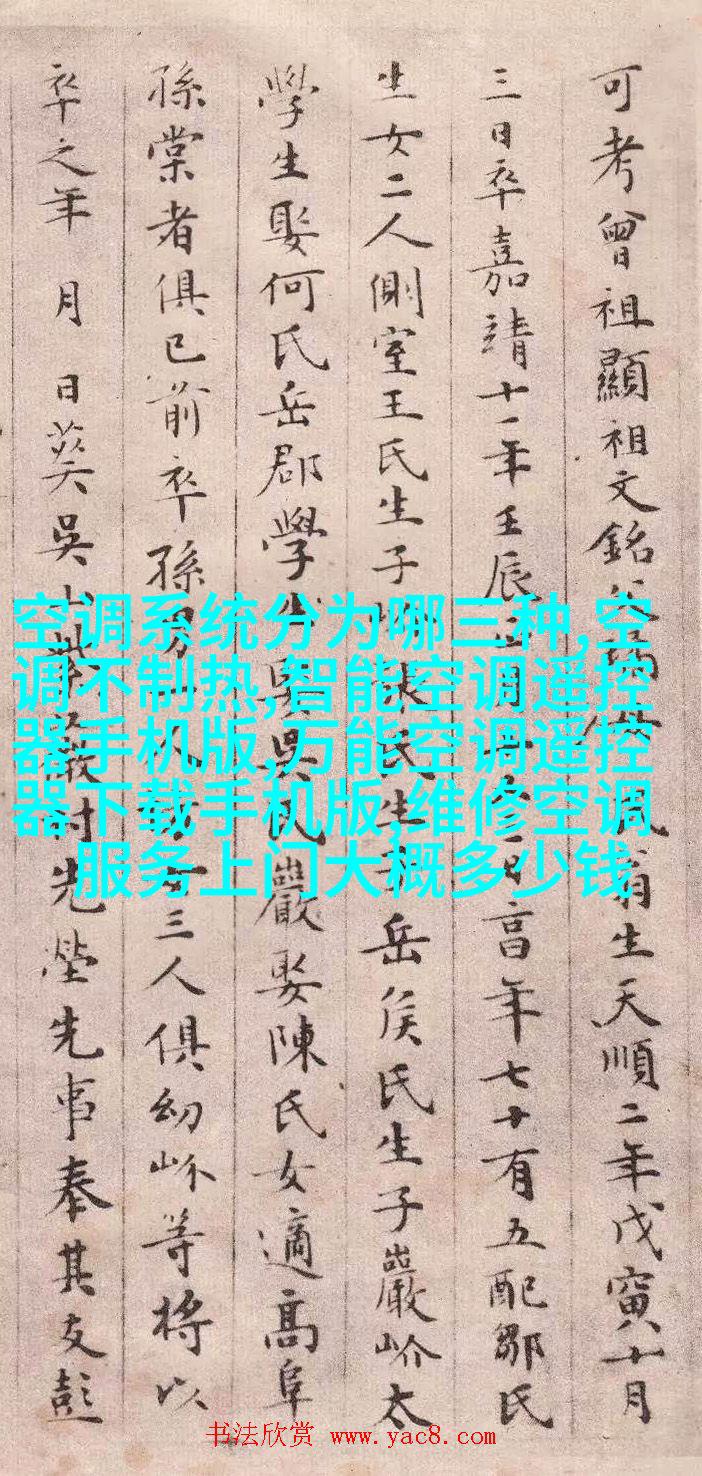 可考曾祖顯祖文銘翁生天順二年戊寅十月
三日卒嘉靖十一年壬辰享年七十有五配鄒氏
生女二人側室王氏生子氏生子岳侯氏生子巖岕太
學生娶何氏岳郡學生娶吳氏巖娶陳氏女適高阜
孫棠者俱已前卒孫男女三人俱幼岕等将以
卒之年 月 日葵吳村先塋先事奉其友彭
空调系统分为哪三种,空
调不制热,智能空调遥控
器手机版,万能空调遥控
器下载手机版,维修空调
服务上门大概多少钱
书法欣赏 www.yac8.com